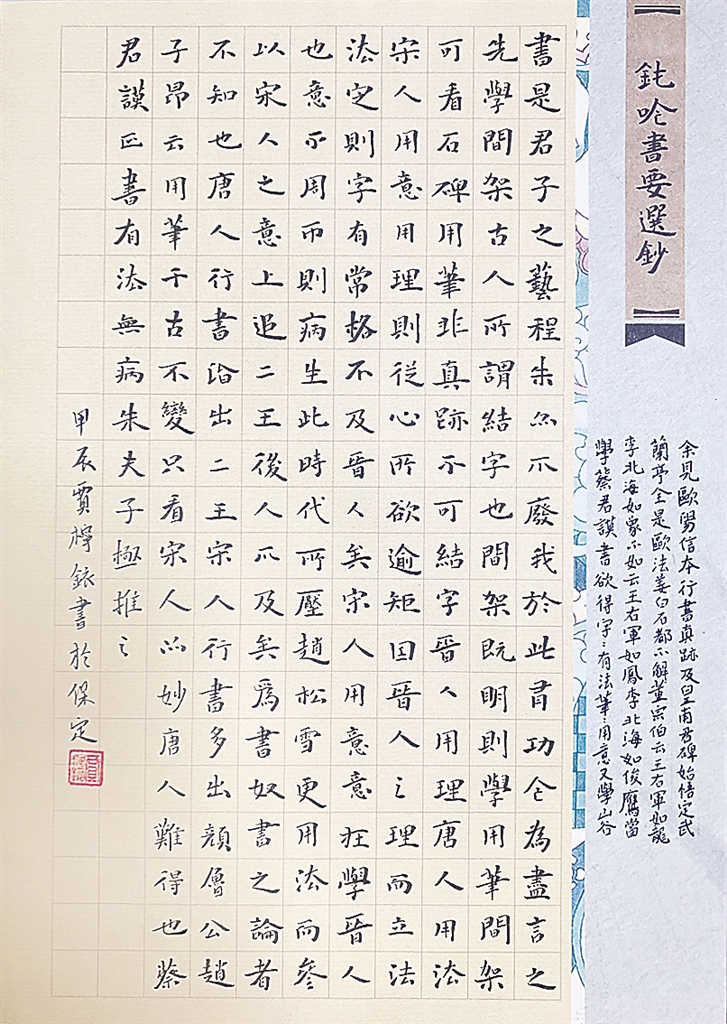 鈍吟書要選鈔
余見歐陽信本行書真跡及皇甫君碑始悟定武
蘭亭全是歐法姜白石都不解董宗伯云王右軍如龍
李北海如象不如云王右軍如鳳李北海如俊鷹當
學蔡君謨書欲得字〻有法筆〻用意又學山谷
書是君子之藝程朱亦不廢我於此有功今為盡言之
先學間架古人所謂結字也間架既明則學用筆間架
可看石碑用筆非真跡不可結字晉人用理唐人用法
宋人用意用理則從心所欲逾矩因晉人之理而立法
法定則字有常格不及晉人矣宋人用意意在學晉人
也意不周帀則病生此時代所壓趙松雪更用法而參
以宋人之意上追二王後人不及矣為書奴書之論者
不知也唐人行書皆出二王宋人行書多出顏魯公趙
子昂云用筆千古不變只看宋人亦妙唐人難得也蔡
君謨正書有法無病朱夫子極推之
甲辰賈檸書於保定